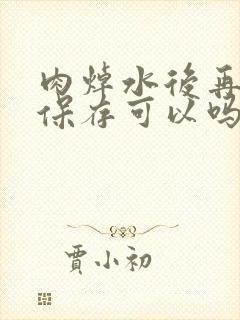 肉焯水後再
保存可以吗
賈小初